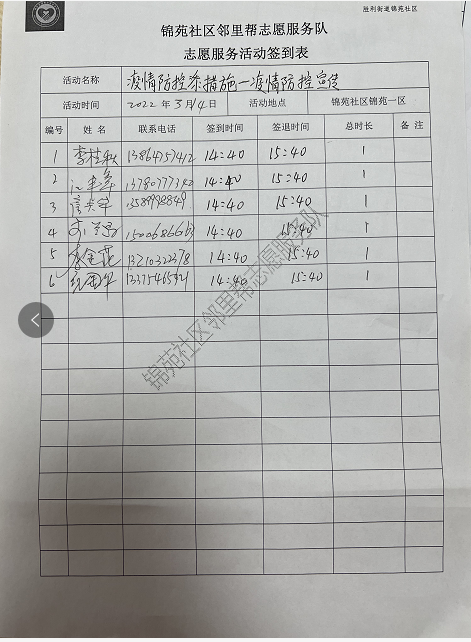 胜利街道锦苑社区
锦苑社区邻里帮志愿服务队
志愿服务活动签到表
活动名称 疫情防控杀措施一疫情防控宣传
活动时间 2022年3月4日 活动地点 锦苑社区锦苑一区
编号 姓名 联系电话 签到时间 签退时间 总时长 备注
1 李桂秋 13864757412 14:40 15:40 1
2 14:40 15:40 1
3 14:40 15:40 1
4 14:40 15:40 1
5 14:40 15:40 1
6 14:40 15:40 1
锦苑社区邻里帮志愿服务队